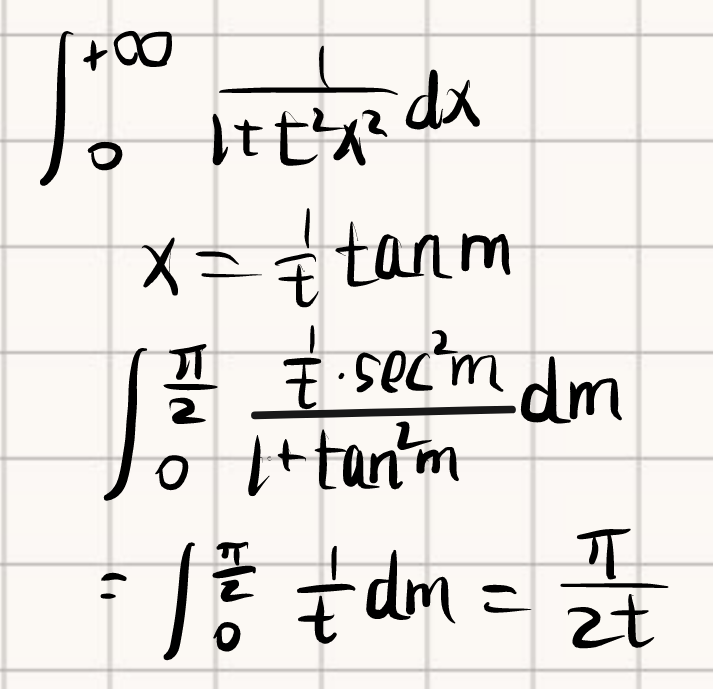 ∫₀^{+∞} 1/(1+t²x²) dx
x = 1/t tan m
∫₀^{π/2} (1/t · sec²m)/(1+tan²m) dm
= ∫₀^{π/2} 1/t dm = π/(2t)